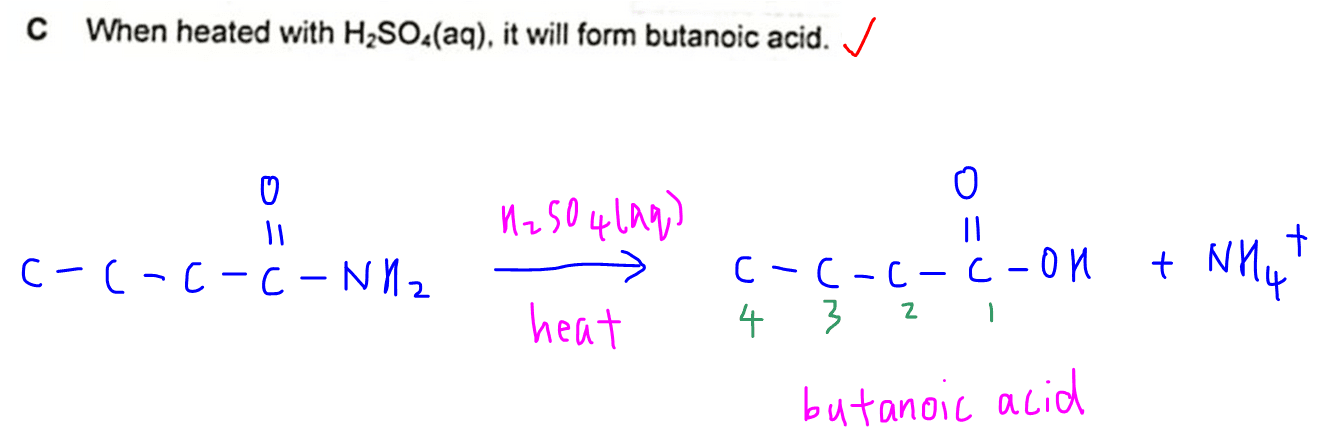 C When heated with H₂SO₄(aq), it will form butanoic acid. ✓
O O
|| H₂SO₄(aq) ||
C-C-C-C-NH₂ → C-C-C-C-OH + NH₄⁺
heat 4 3 2 1
butanoic acid